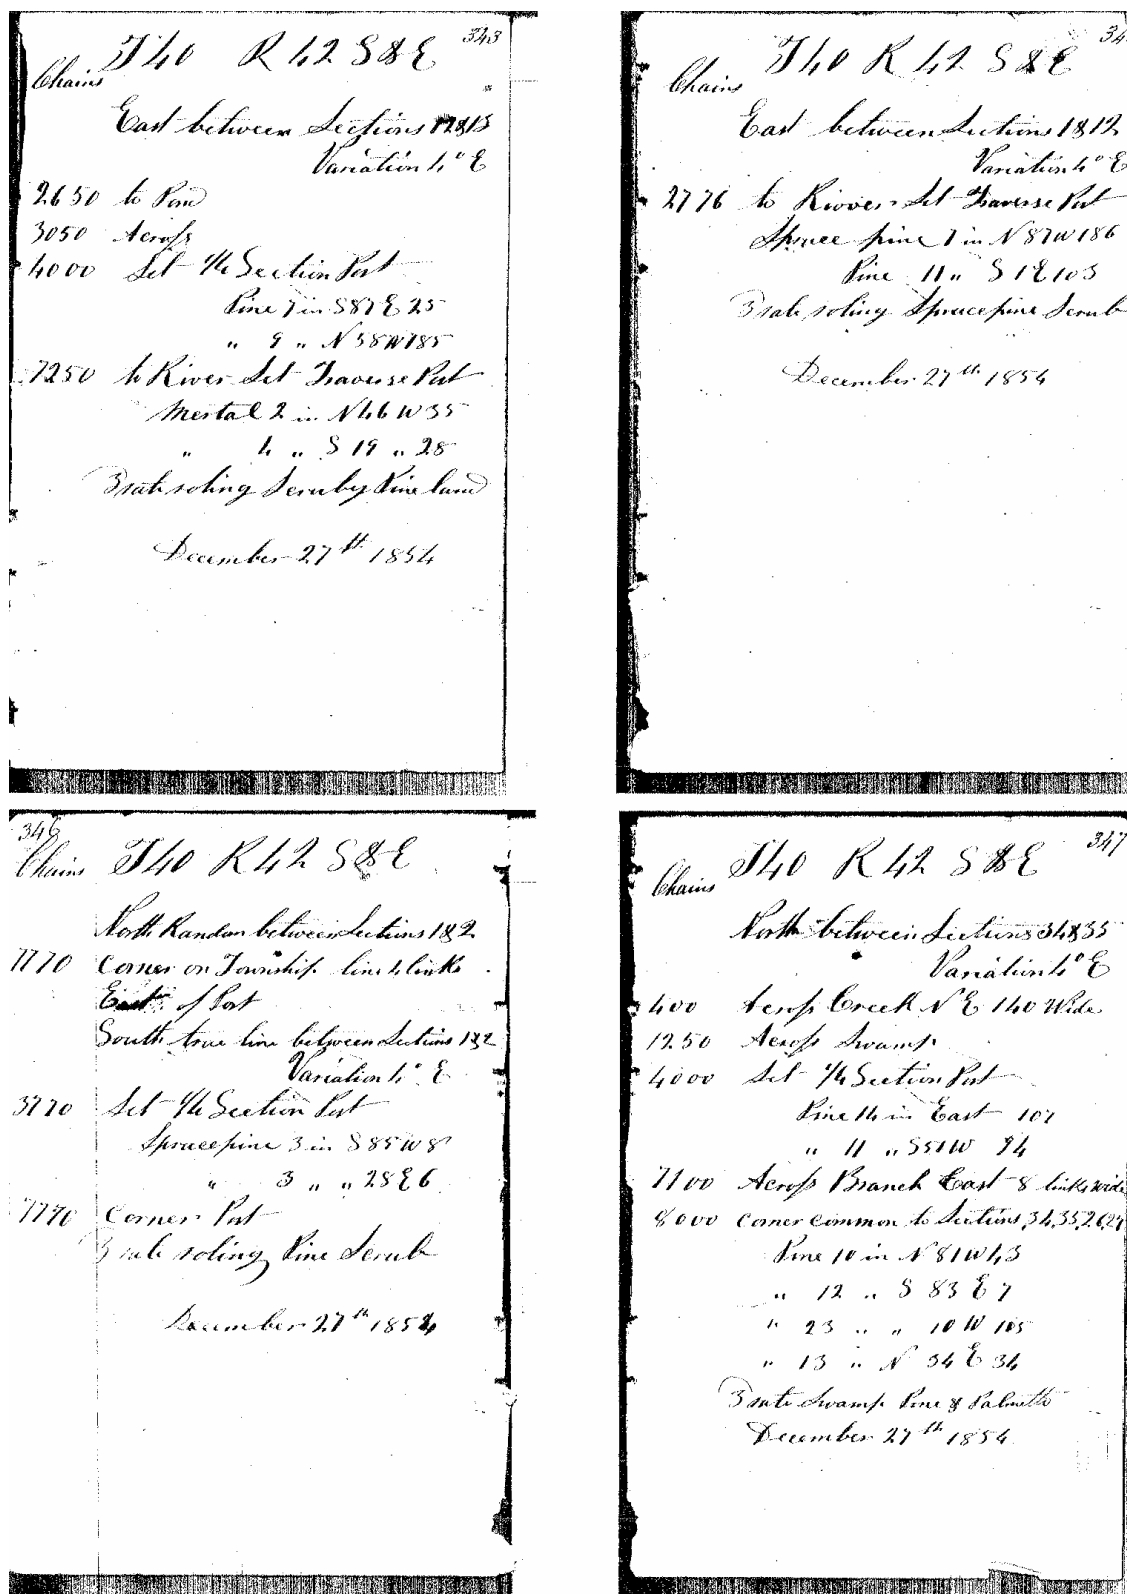 343
T40 R42 S&E
Chains
East between Sections 12&13
Variation 4° E
2650 to Pond
3050 Across
4000 Set 1/4 Section Post
Pine 7 in S87E 25
" 9 " N38W185
7250 to River Set Traverse Post
Mertal 2 in N46W35
" 4 " S 19 " 28
3 rate roling Scruby Pine land
December 27th 1854
T40 R42 S&E
Chains
East between Sections 1&12
Variation 4° E
2776 to Rivver Set Traverse Post
Spruce pine 7 in N87W186
Pine 11 " S1E103
3 rate roling Spruce pine Scrub
December 27th 1854
346
Chains T40 R42 S&E
North Random between Sections 1&2
7770 Corner on Township line 4 links
East of Post
South true line between Sections 1&2
Variation 4° E
3770 Set 1/4 Section Post
Spruce pine 3 in S85W8
" 3 " " 28E6
7770 Corner Post
3 rate roling Pine Scrub
December 27th 1854
347
T40 R42 S&E
Chains
North between Sections 34&35
Variation 4° E
400 Across Creek N E 140 Wide
1250 Across Swamp
4000 Set 1/4 Section Post
Pine 14 in East 107
" 11 " S51W 94
7100 Across Branch East 8 links wide
8000 corner common to Sections 34,35,26,27
Pine 10 in N81W43
" 12 " S 83 E 7
" 23 " " 10 W 105
" 13 " N 54 E 34
3 rate Swamp Pine & Palmetto
December 27th 1854